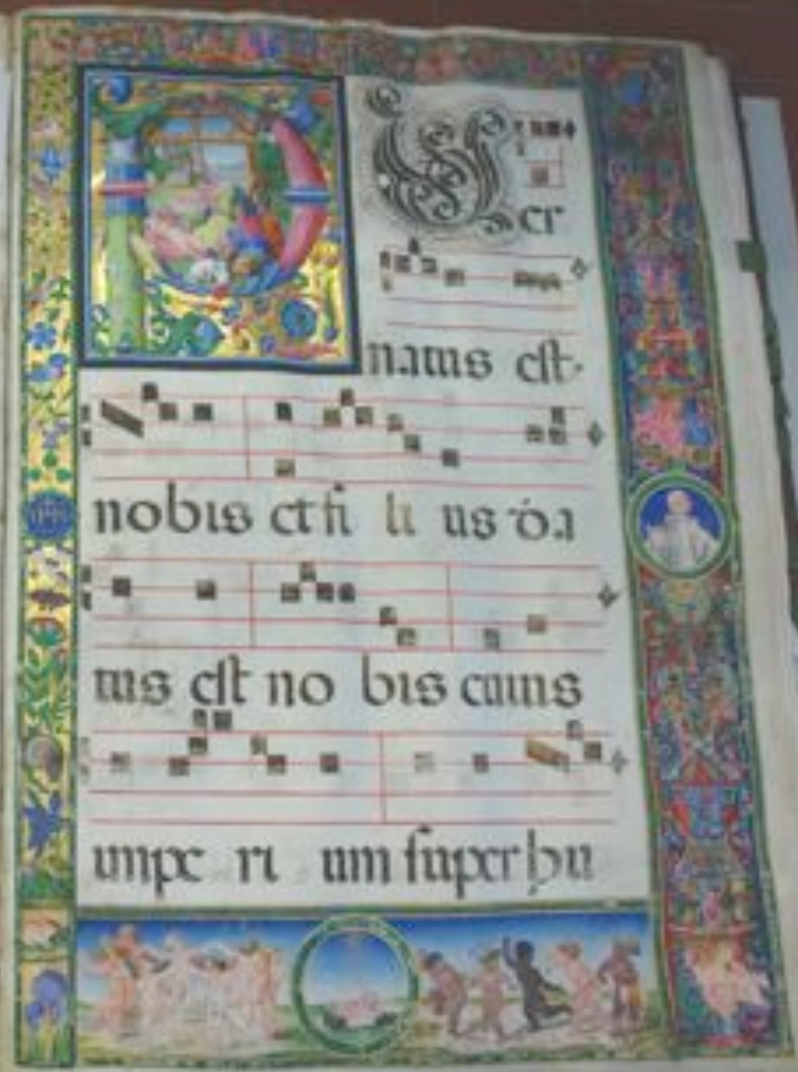 PUer
natus est·
nobis et fi li us da
tus est no bis cuius
impe ri um super hu